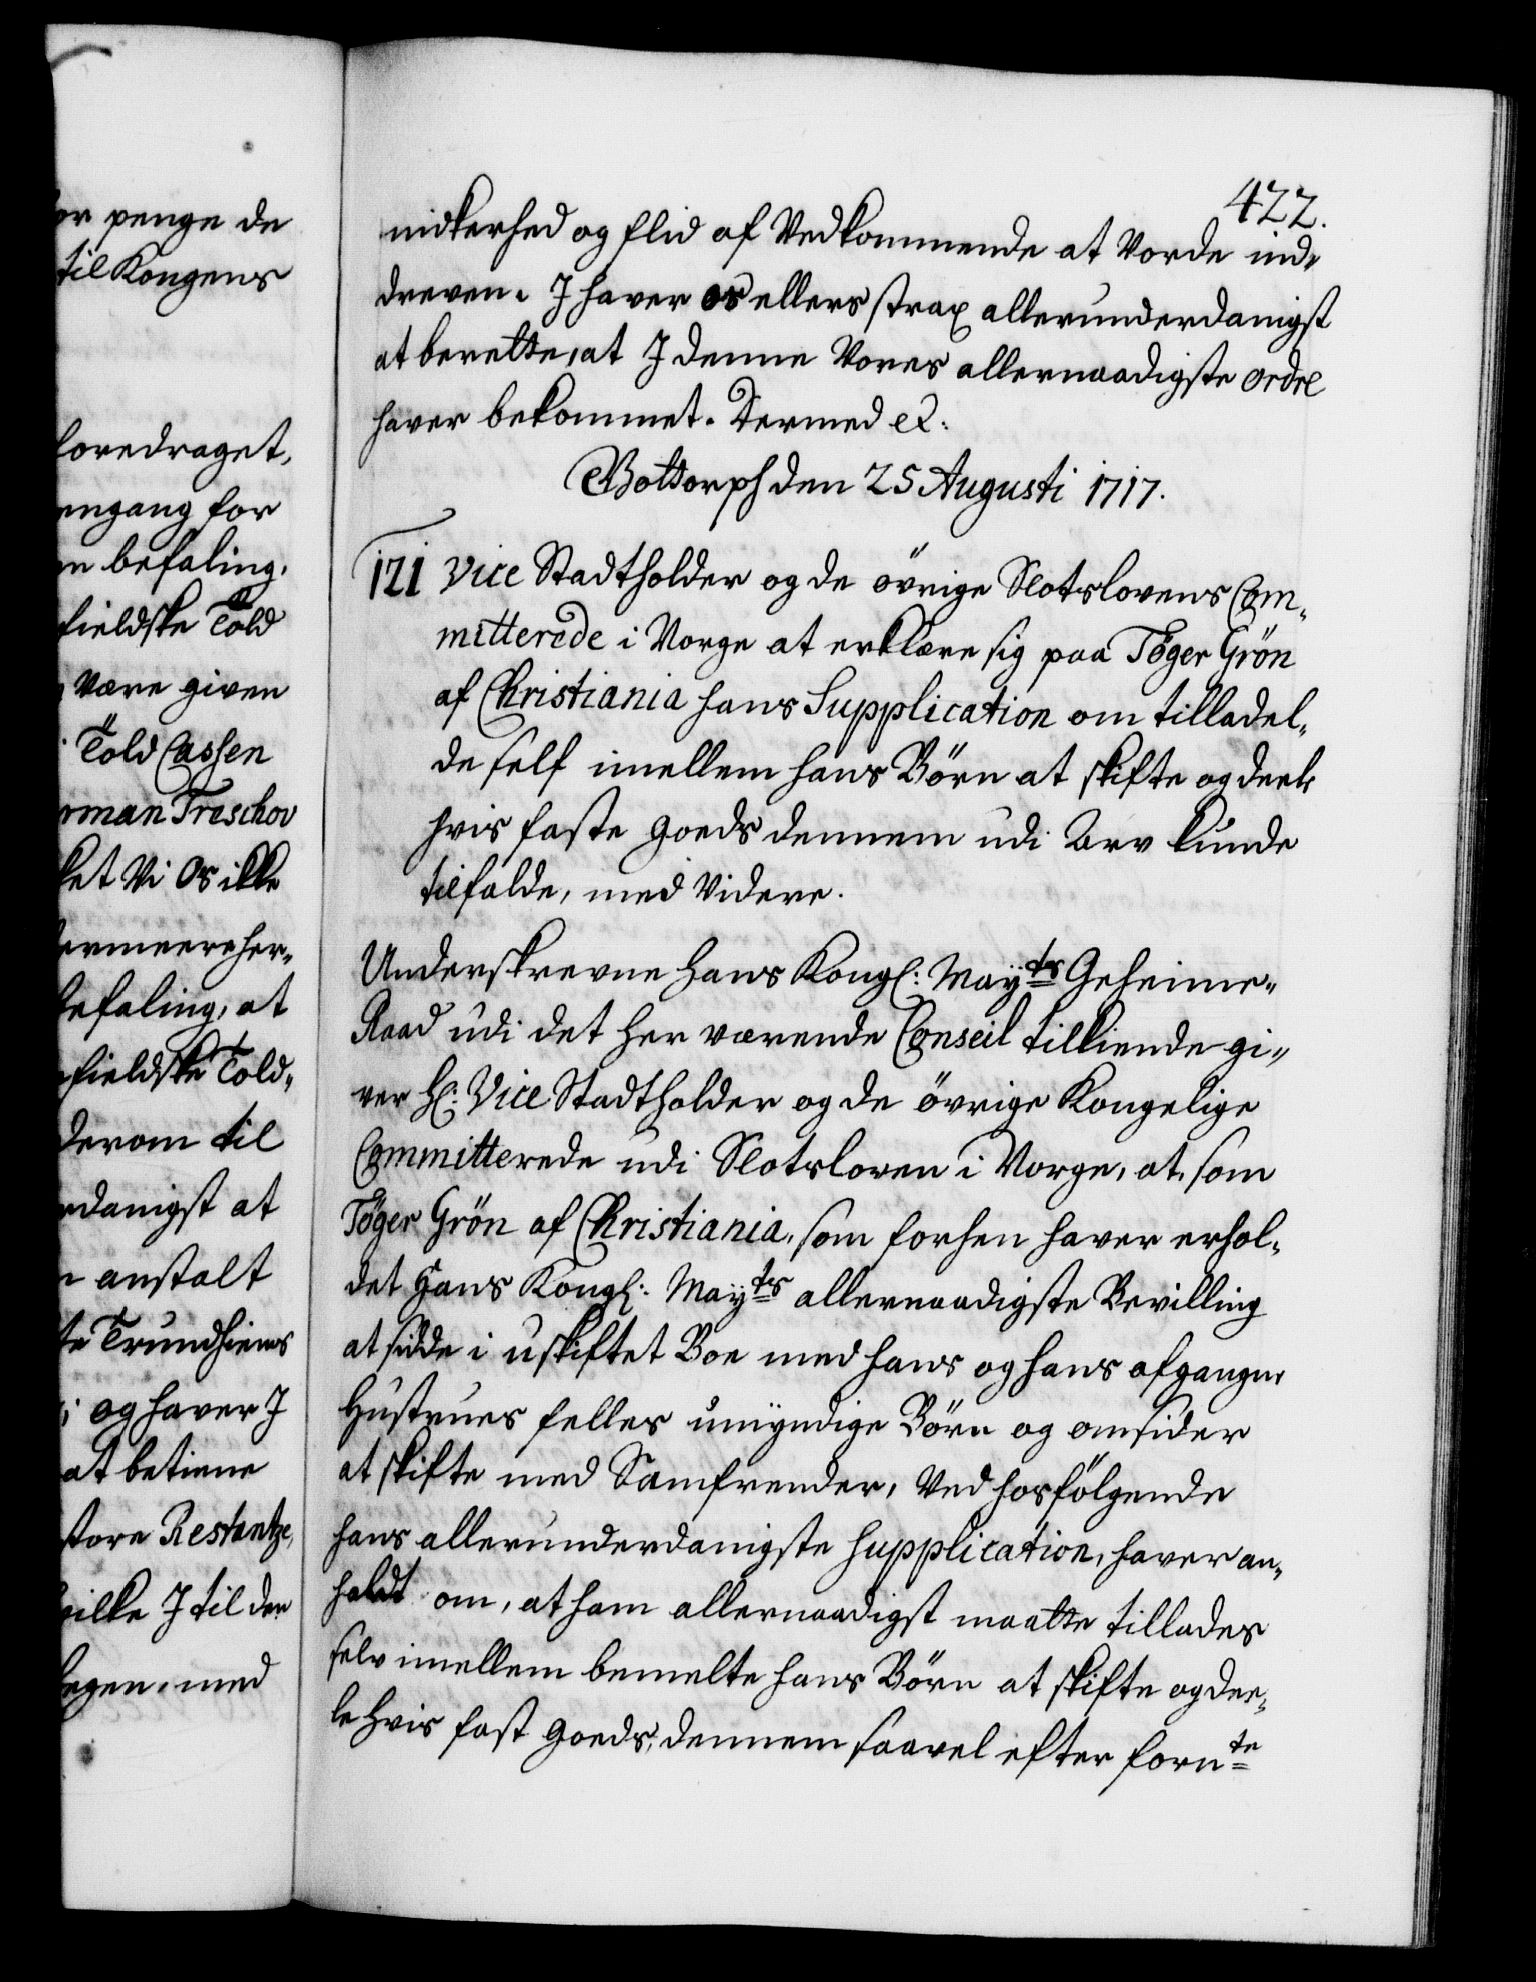 or penge de
til Kongens
foredraget,
engang for
n befaling,
fieldske Told
Være given
Told Cassen
rman Treschov
ket Vi Os ikke
ermeere her-
befaling, at
fieldske Told-
derom til
rdanigst at
anstalt
te Trundhiems
; og haver I
at betiene
store Restantze,
vilke I til den
legen, med
422.
nidkerhed og flid af Vedkommende at Vorde ind-
dreven. I haver os ellers strax allerunderdanigst
at berette, at I denne Vores allernaadigste Ordre
haver bekommet. Dermed ec.
Gottorph den 25 Augusti 1717.
121 Vice Stadtholder og de övrige Slotslovens Com-
mitterede i Norge at erklære sig paa Töger Grön
af Christiania hans Supplication om tilladel-
de self imellem hans Börn at skifte og deele
hvis faste Goeds dennem udi Arv kunde
tilfalde, med Videre.
Underskrevne Hans Kongl: Mayts Geheime-
Raad udi det her værende Conseil tilkiende gi-
ver Hl: Vice Stadtholder og de övrige Kongelige
Committerede udi Slotsloven i Norge, at, som
Töger Grön af Christiania, som forhen haver erhol-
det Hans Kongl: Mayts allernaadigste Bevilling
at sidde i uskiftet Boe med hans og hans afgangne
Hustrues felles umyndige Börn og omsider
at skifte med Samfrender, Ved hosfölgende
hans allerunderdanigste Supplication, haver an-
holdt om, at ham allernaadigst maatte tillades
selv imellem bemelte hans Börn at skifte og dee-
le hvis fast Goeds, dennem saavel efter fornte